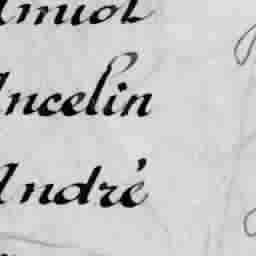 Amiot
Ancelin
André